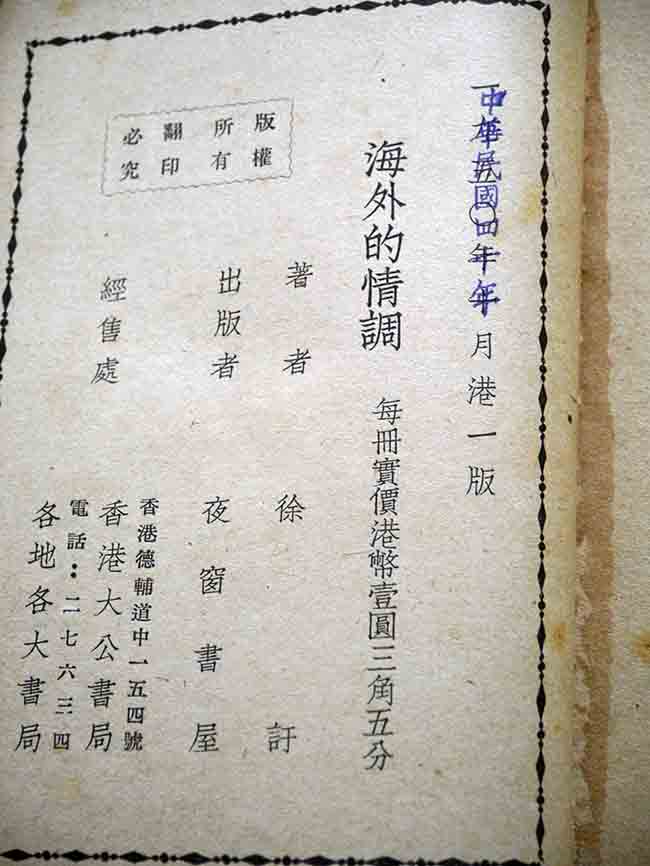 中華民國
月港一版
海外的情調 每冊實價港幣壹圓三角五分
版權所有
翻印必究
著者 徐訏
出版者 夜窗書屋
經售處
香港德輔道中一五四號
香港大公書局
電話：二七六三四
各地各大書局